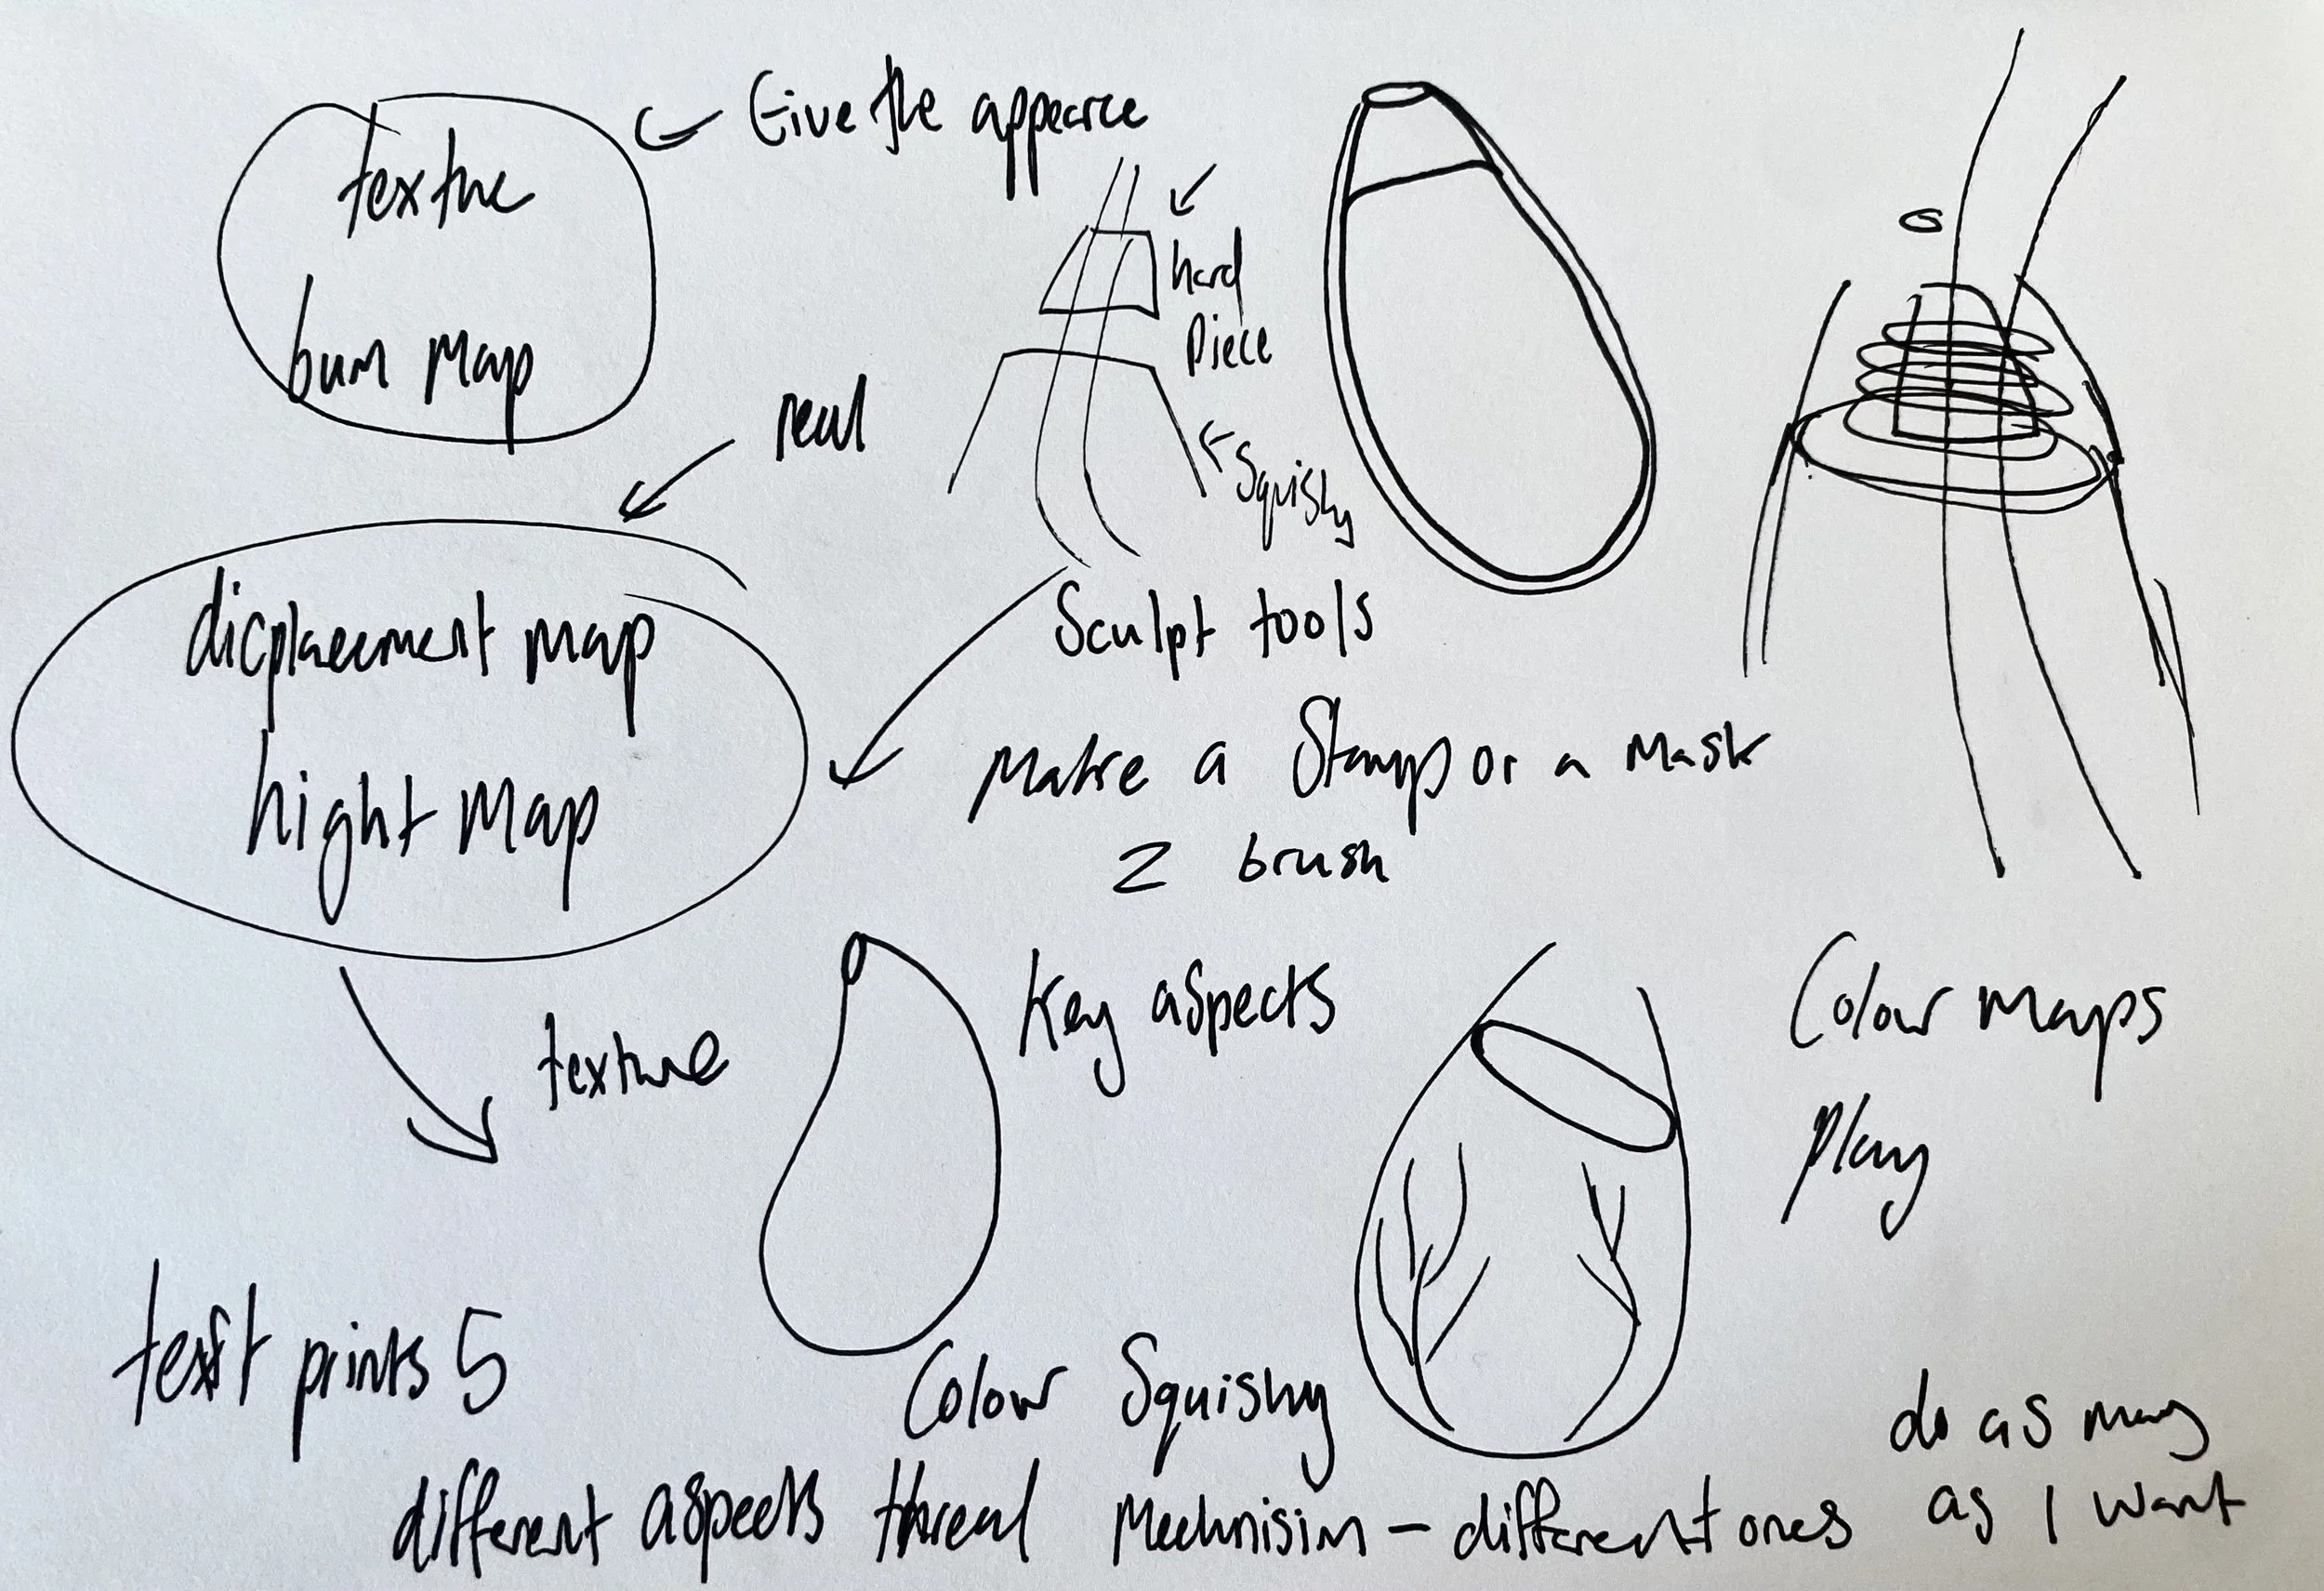 Give the appearce
textue
bum map
hard
piece
real
Squishy
dicplacement map
Sculpt tools
hight map
Make a Stamp or a mask
Z brush
Key aspects
Colour maps
play
texture
test prints 5
Colour Squishy
do as many
as I want
different aspects thread Mechnisim - different ones